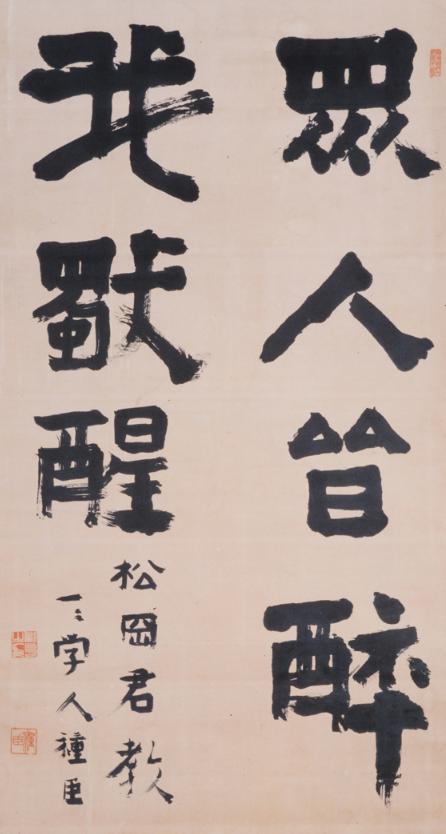 眾人皆醉
我獨醒
松岡君教
一々学人種臣